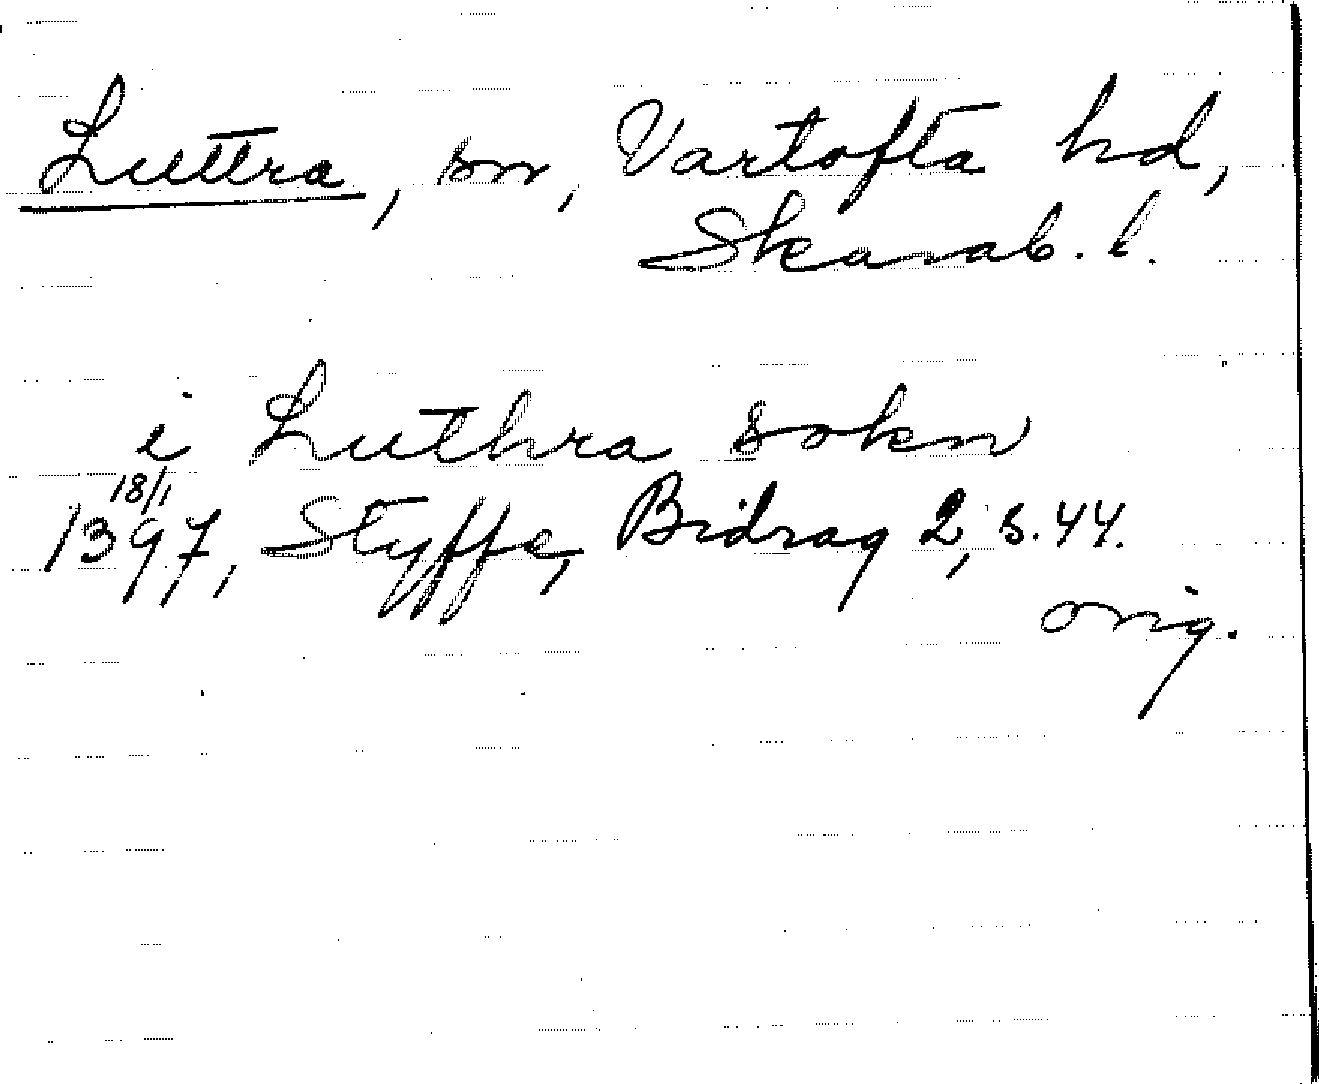 Luttra, sn, Vartofta hd,
Skarab. l.
i Luthra sokn
18/1
1397, Styffe, Bidrag 2, s. 44.
orig.